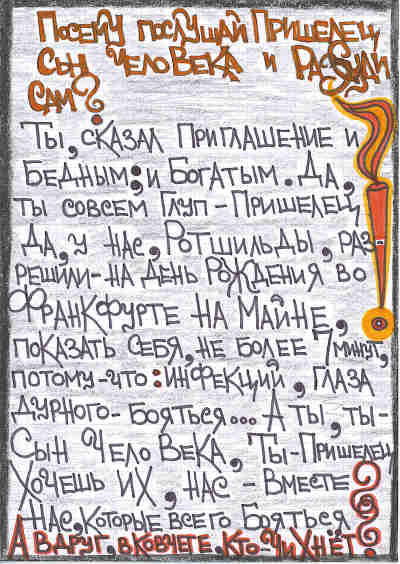 Почему послушай Пришелец,
Сын Человека и Рассуди
Сам?
Ты, сказал Приглашение и
Бедным; и Богатым. Да,
ты совсем Глуп - Пришелец,
Да, у нас, Ротшильды, раз-
решили - на День Рождения во
Франкфурте на Майне,
показать себя, не более 7 минут,
потому-что: инфекций, глаза
дурного - бояться... А ты, ты -
Сын Человека, Ты - Пришелец
Хочешь их, нас - Вместе
Нас, которые всего Бояться
А вдруг, в ковчеге, кто-чихнёт